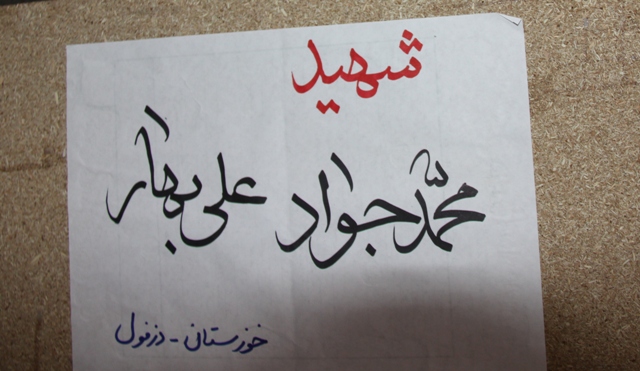 شهید
محمّدجواد علی بهار
خوزستان - دزفول